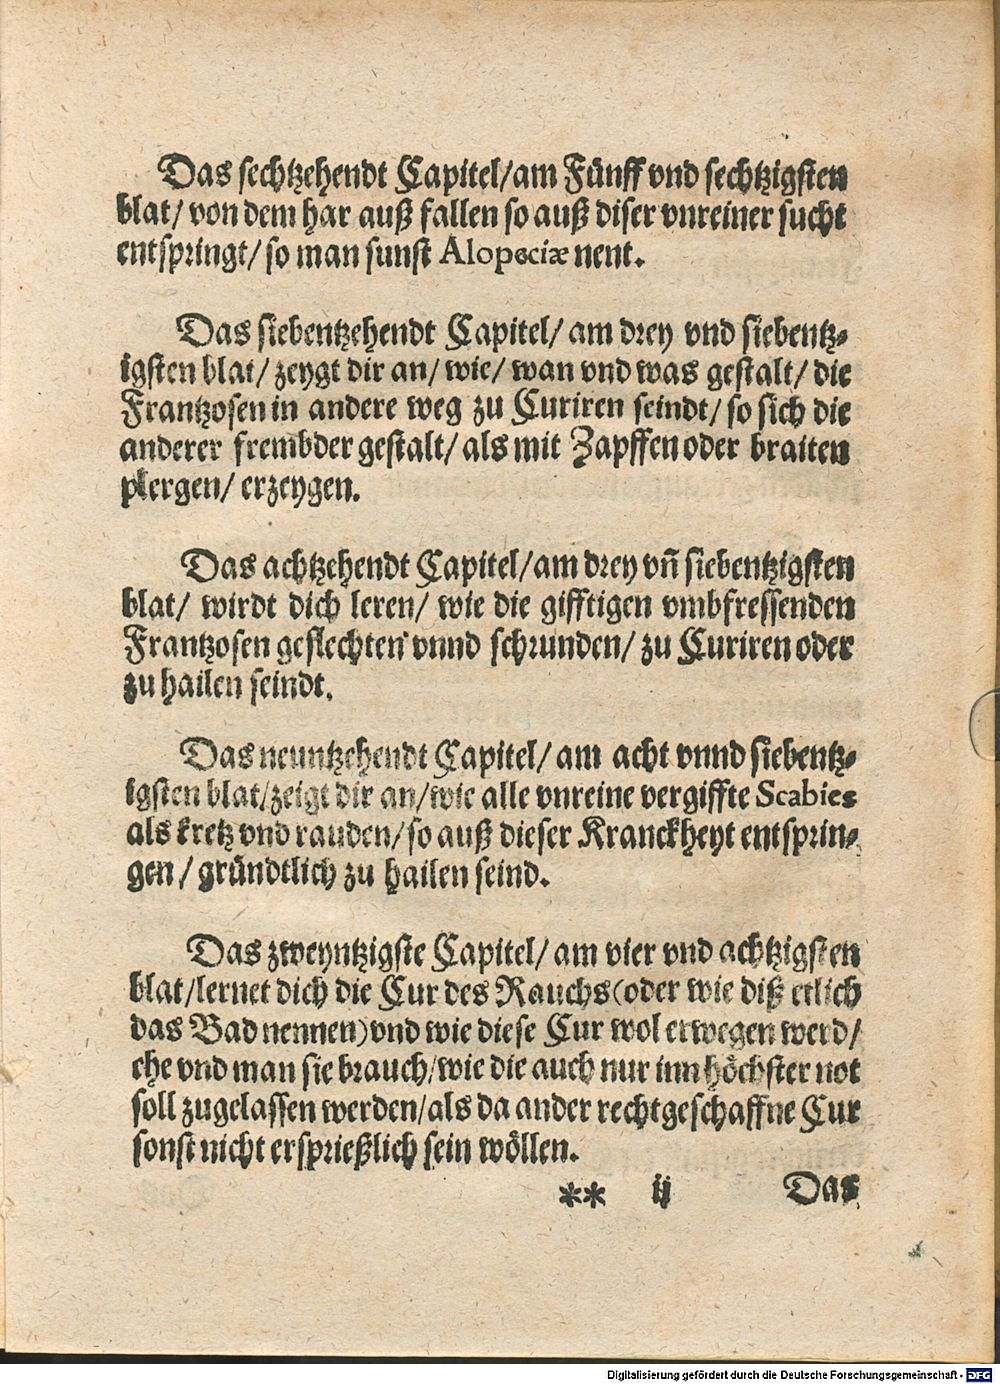 Das sechtzehendt Capitel/am Fünff vnd sechtzigsten
blat/ von dem har auß fallen so auß diser vnreiner sucht
entspringt/ so man sunst Alopeciæ nent.
Das siebentzehendt Capitel/ am drey vnd siebentz⸗
igsten blat/ zeygt dir an/ wie/ wan vnd was gestalt/ die
Frantzosen in andere weg zu Curiren seindt/ so sich die
anderer frembder gestalt/ als mit Zapffen oder braiten
plergen/ erzeygen.
Das achtzehendt Capitel/am drey vñ siebentzigsten
blat/ wirdt dich leren/ wie die gifftigen vmbfressenden
Frantzosen geflechten vnnd schrunden/ zu Curiren oder
zu hailen seindt.
Das neuntzehendt Capitel/ am acht vnnd siebentz⸗
igsten blat/zeigt dir an/wie alle vnreine vergiffte Scabies
als kretz vnd rauden/so auß dieser Kranckheyt entsprin⸗
gen/ gründtlich zu hailen seind.
Das zweyntzigste Capitel/ am vier vnd achtzigsten
blat/lernet dich die Cur des Rauchs(oder wie diß etlich
das Bad nennen)vnd wie diese Cur wol erwegen werd/
ehe vnd man sie brauch/wie die auch nur inn höchster not
soll zugelassen werden/als da ander rechtgeschaffne Cur
sonst nicht ersprießlich sein wöllen.
** ij Das
Digitalisierung gefördert durch die Deutsche Forschungsgemeinschaft - DFG